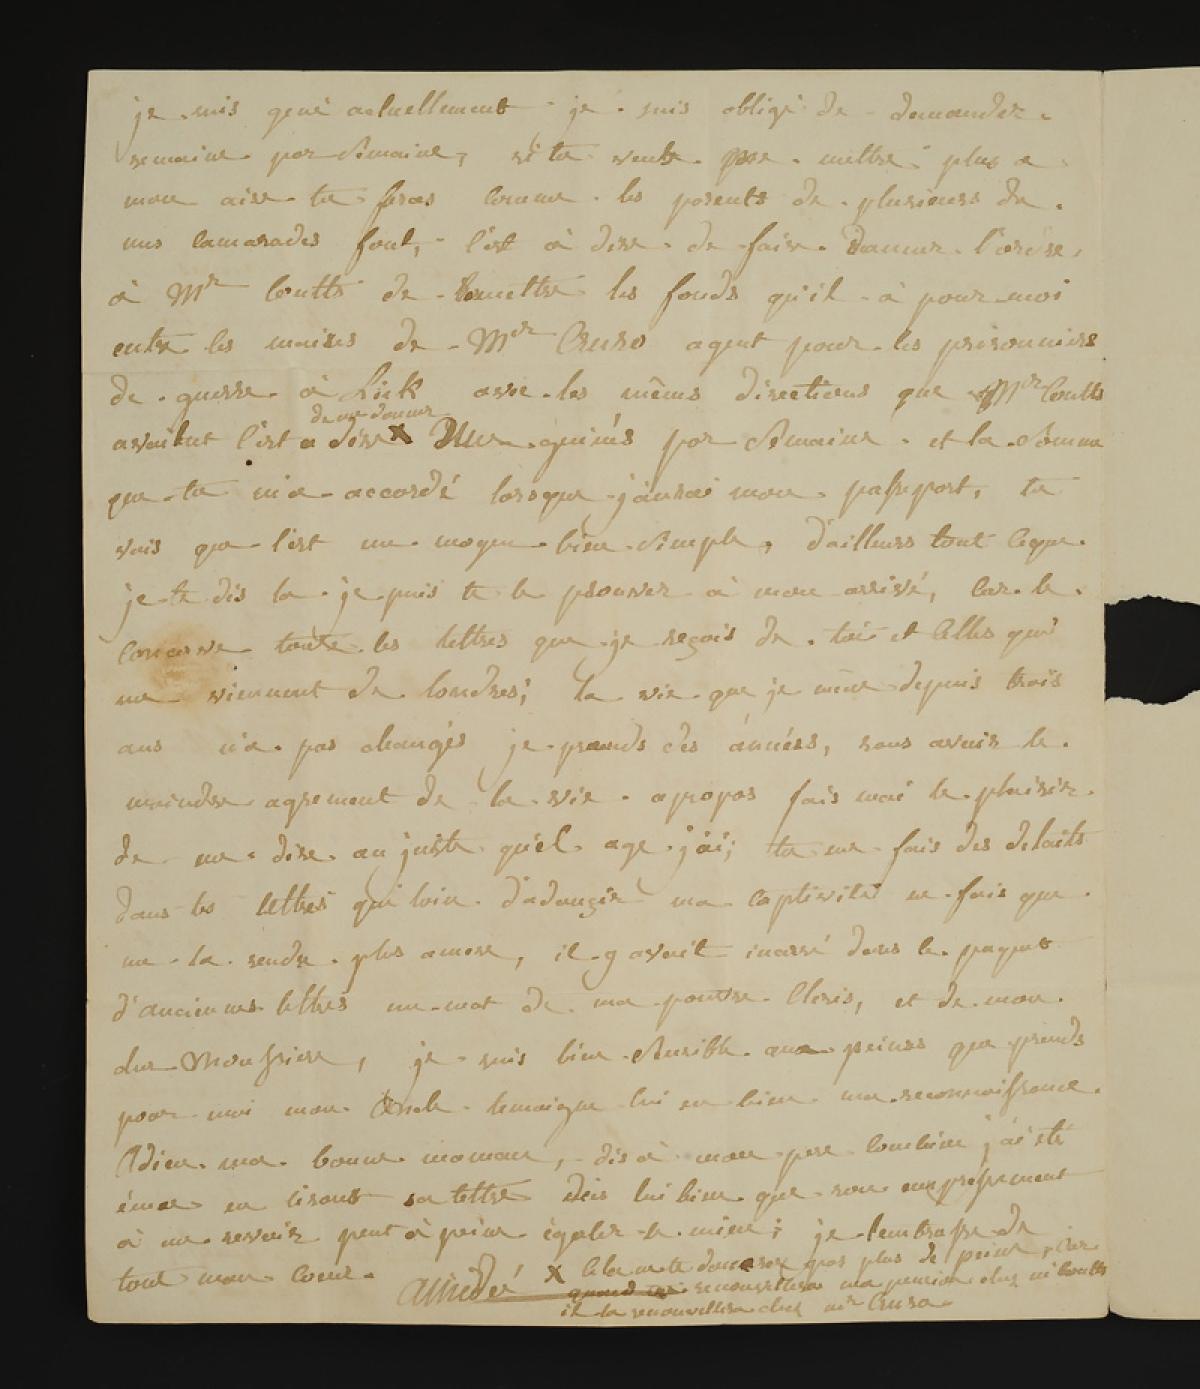 je suis gené actuellement je suis obligé de demander
semaine par semaine, si tu veux me mettre plus a
mon aise tu feras comme les parents de plusieurs de
mes camarades font, c'est à dire de faire donner l'ordre
à Mr Coutts de remettre les fonds qu'il à pour moi
entre les mains de Mr Cruso agent pour les prisonniers
de guerre à Liek avec les mêmes directions que Mr Coutts
de me donner
avait c'est a dire x Une guinés par semaine et la somme
que tu m'a accordé lorsque j'aurai mon passeport, tu
vois que c'est un moyen bien simple, d'ailleurs tout ceque
je te dis la je puis te le prouver à mon arrivé, car je
conserve toute les lettres que je reçois de toi et celles qui
me viennent de londres; la vie que je mene depuis trois
ans n'a pas changés je prends des années, sans avoir le
moindre agrement de la vie apropos fais moi le plaisir
de me dire au juste qu'el age j'ai; tu me fais des details
dans tes lettres qui loin d'adouçir ma captivité ne fais que
me la rendre plus amere, il y avait inseré dans le paquet
d'anciennes lettres un mot de ma pauvre Cloris, et de mon
cher Moussiere, je suis bien sensible aux peines que prends
pour moi mon Oncle temoigne lui en bien ma reconnoissance.
Adieu ma bonne maman, dis à mon pere combien j'ai été
émue en lisant sa lettre dis lui bien que son empressement
à me revoir peut à peine égaler le mien; je t'embrasse de
tout mon coeur.
Amedée x Cela ne te donnera pas plus de peine, car
quand renouvellera ma pension chez mr Coutts
il la renouvellera chez mr Cruso